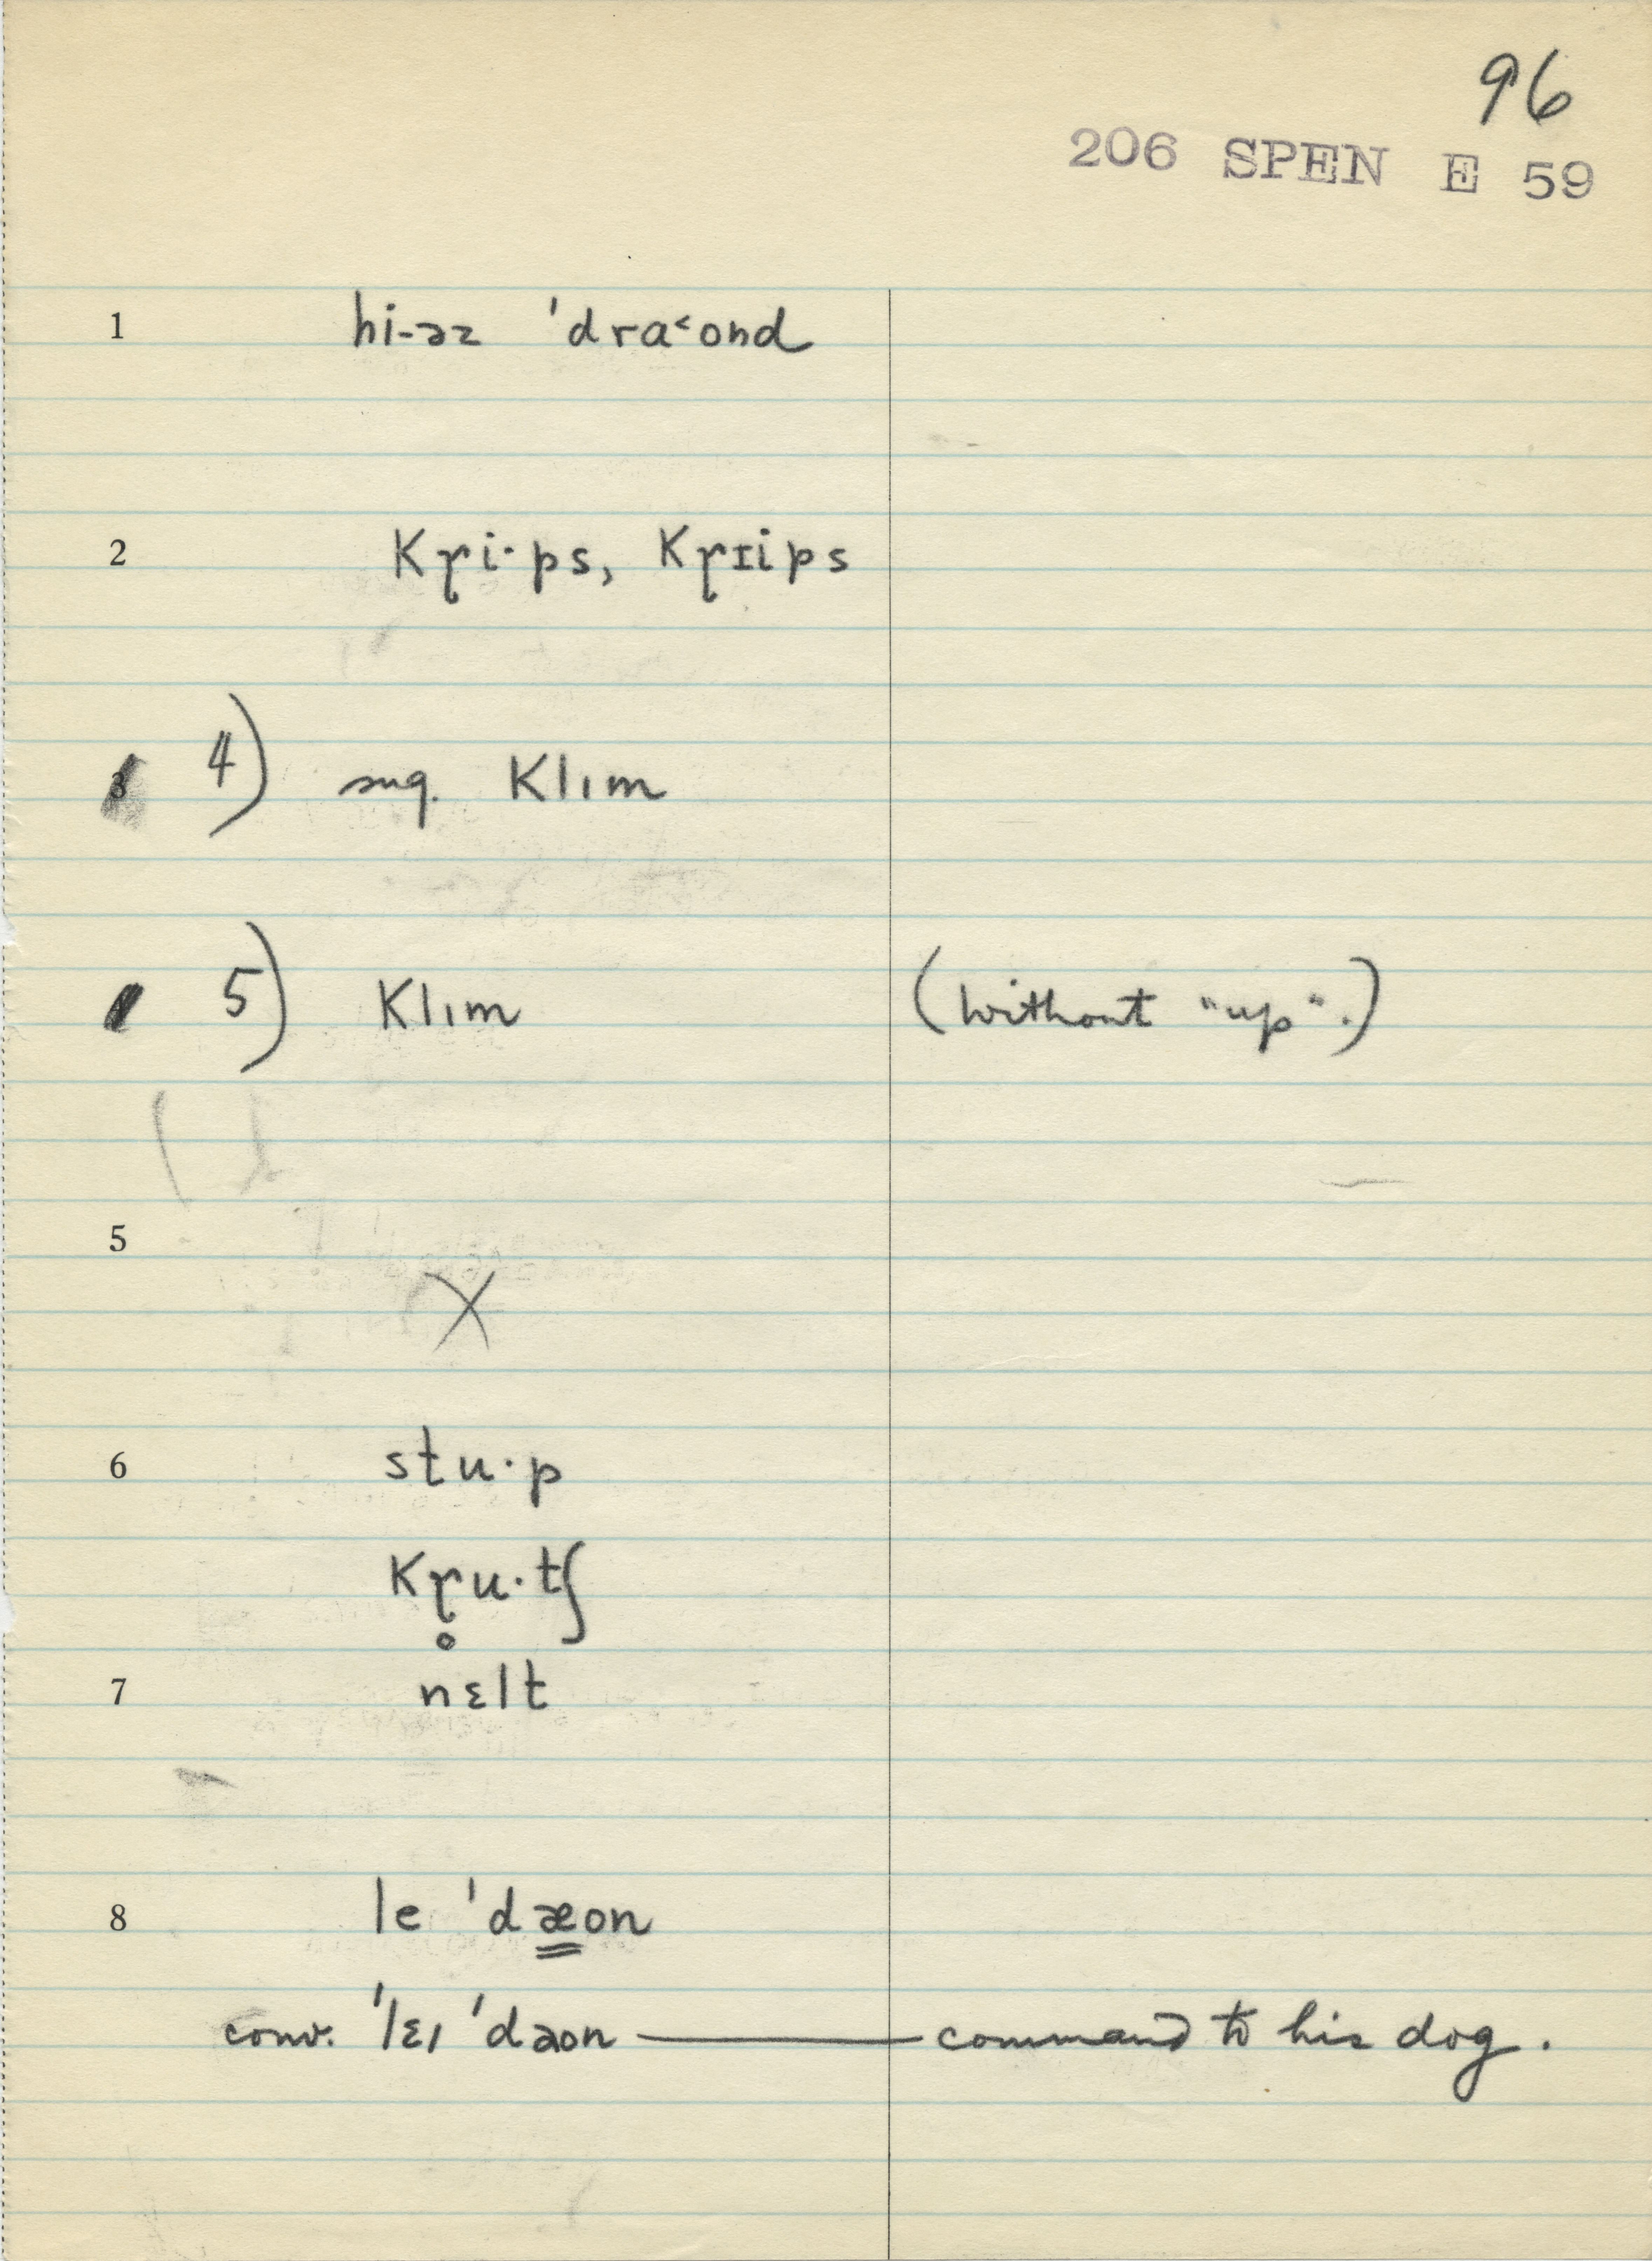 96
206 SPEN E 59
1 hi-əz ˈdra˂ond
2 Kɽi·ps, Kɽɪips
3 4) sug. Klım
5) Klım (without "up".)
5
X
6 stu·p
Kɽ̥u·tʃ
7 nɛlt
8 le ˈdæon
conv. ˈlɛı ˈdaon — command to his dog.